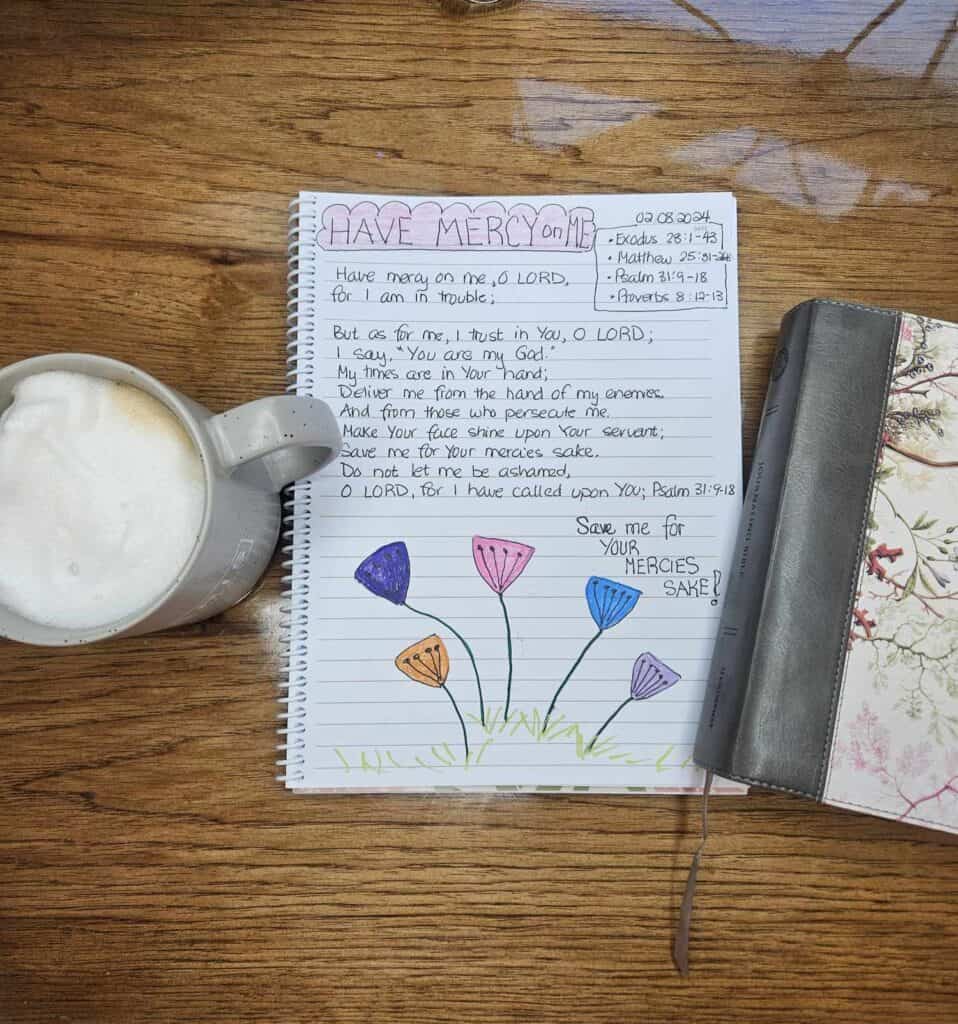 HAVE MERCY on ME
02.08.2024
• Exodus 28:1-43
• Matthew 25:31-
• Psalm 31:9-18
• Proverbs 8:12-13
Have mercy on me, O LORD,
for I am in trouble;
But as for me, I trust in You, O LORD;
I say, "You are my God."
My times are in Your hand;
Deliver me from the hand of my enemies.
And from those who persecute me.
Make Your face shine upon Your servant;
Save me for Your mercies sake.
Do not let me be ashamed,
O LORD, for I have called upon You; Psalm 31:9-18
Save me for
YOUR
MERCIES
SAKE!
JOURNALING BIBLE